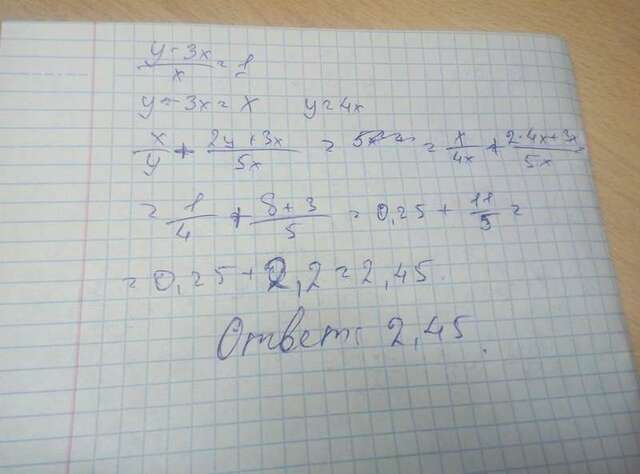 (y - 3x)/x = 1
y - 3x = x y = 4x
x/y + (2y + 3x)/5x = = x/4x + (2·4x+3x)/5x =
= 1/4 + (8 + 3)/5 = 0,25 + 11/5 =
= 0,25 + 2,2 = 2,45.
Ответ: 2,45.